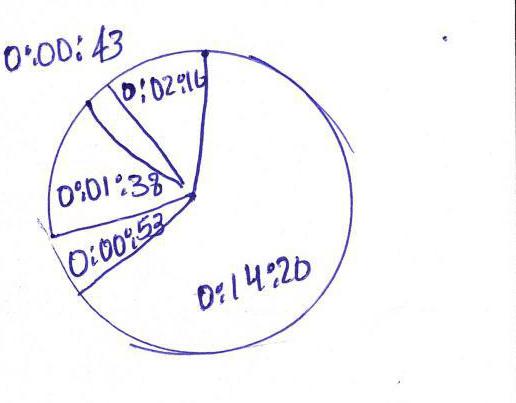 0:00:43
0:02:16
0:01:38
0:00:53
0:14:20